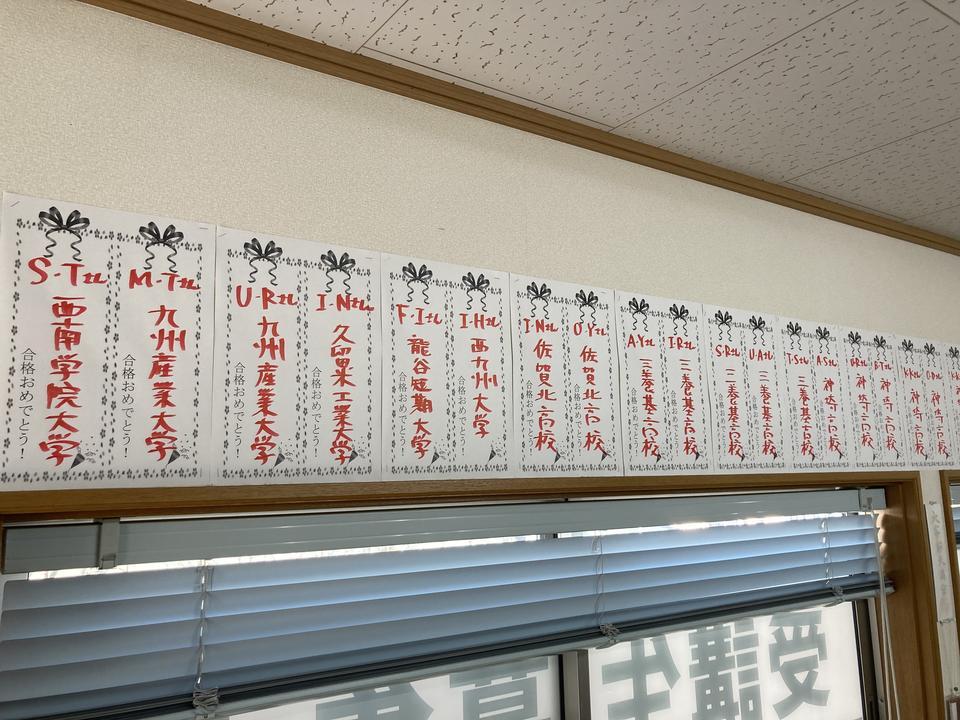 S・Tさん
西南学院大学
合格おめでとう！
M・Tさん
九州産業大学
合格おめでとう！
U・Rさん
九州産業大学
合格おめでとう！
I・Nさん
久留米工業大学
合格おめでとう！
F・Iさん
龍谷短期大学
合格おめでとう！
I・Hさん
西九州大学
合格おめでとう！
I・Nさん
佐賀北高校
合格おめでとう！
O・Yさん
佐賀北高校
合格おめでとう！
A・Yさん
三養基高校
合格おめでとう！
I・Rさん
三養基高校
合格おめでとう！
S・Rさん
三養基高校
合格おめでとう！
U・Aさん
三養基高校
合格おめでとう！
T・Sさん
三養基高校
合格おめでとう！
A・Sさん
神埼高校
合格おめでとう！
神埼高校
神埼高校
神埼高校
神埼高校
受講生